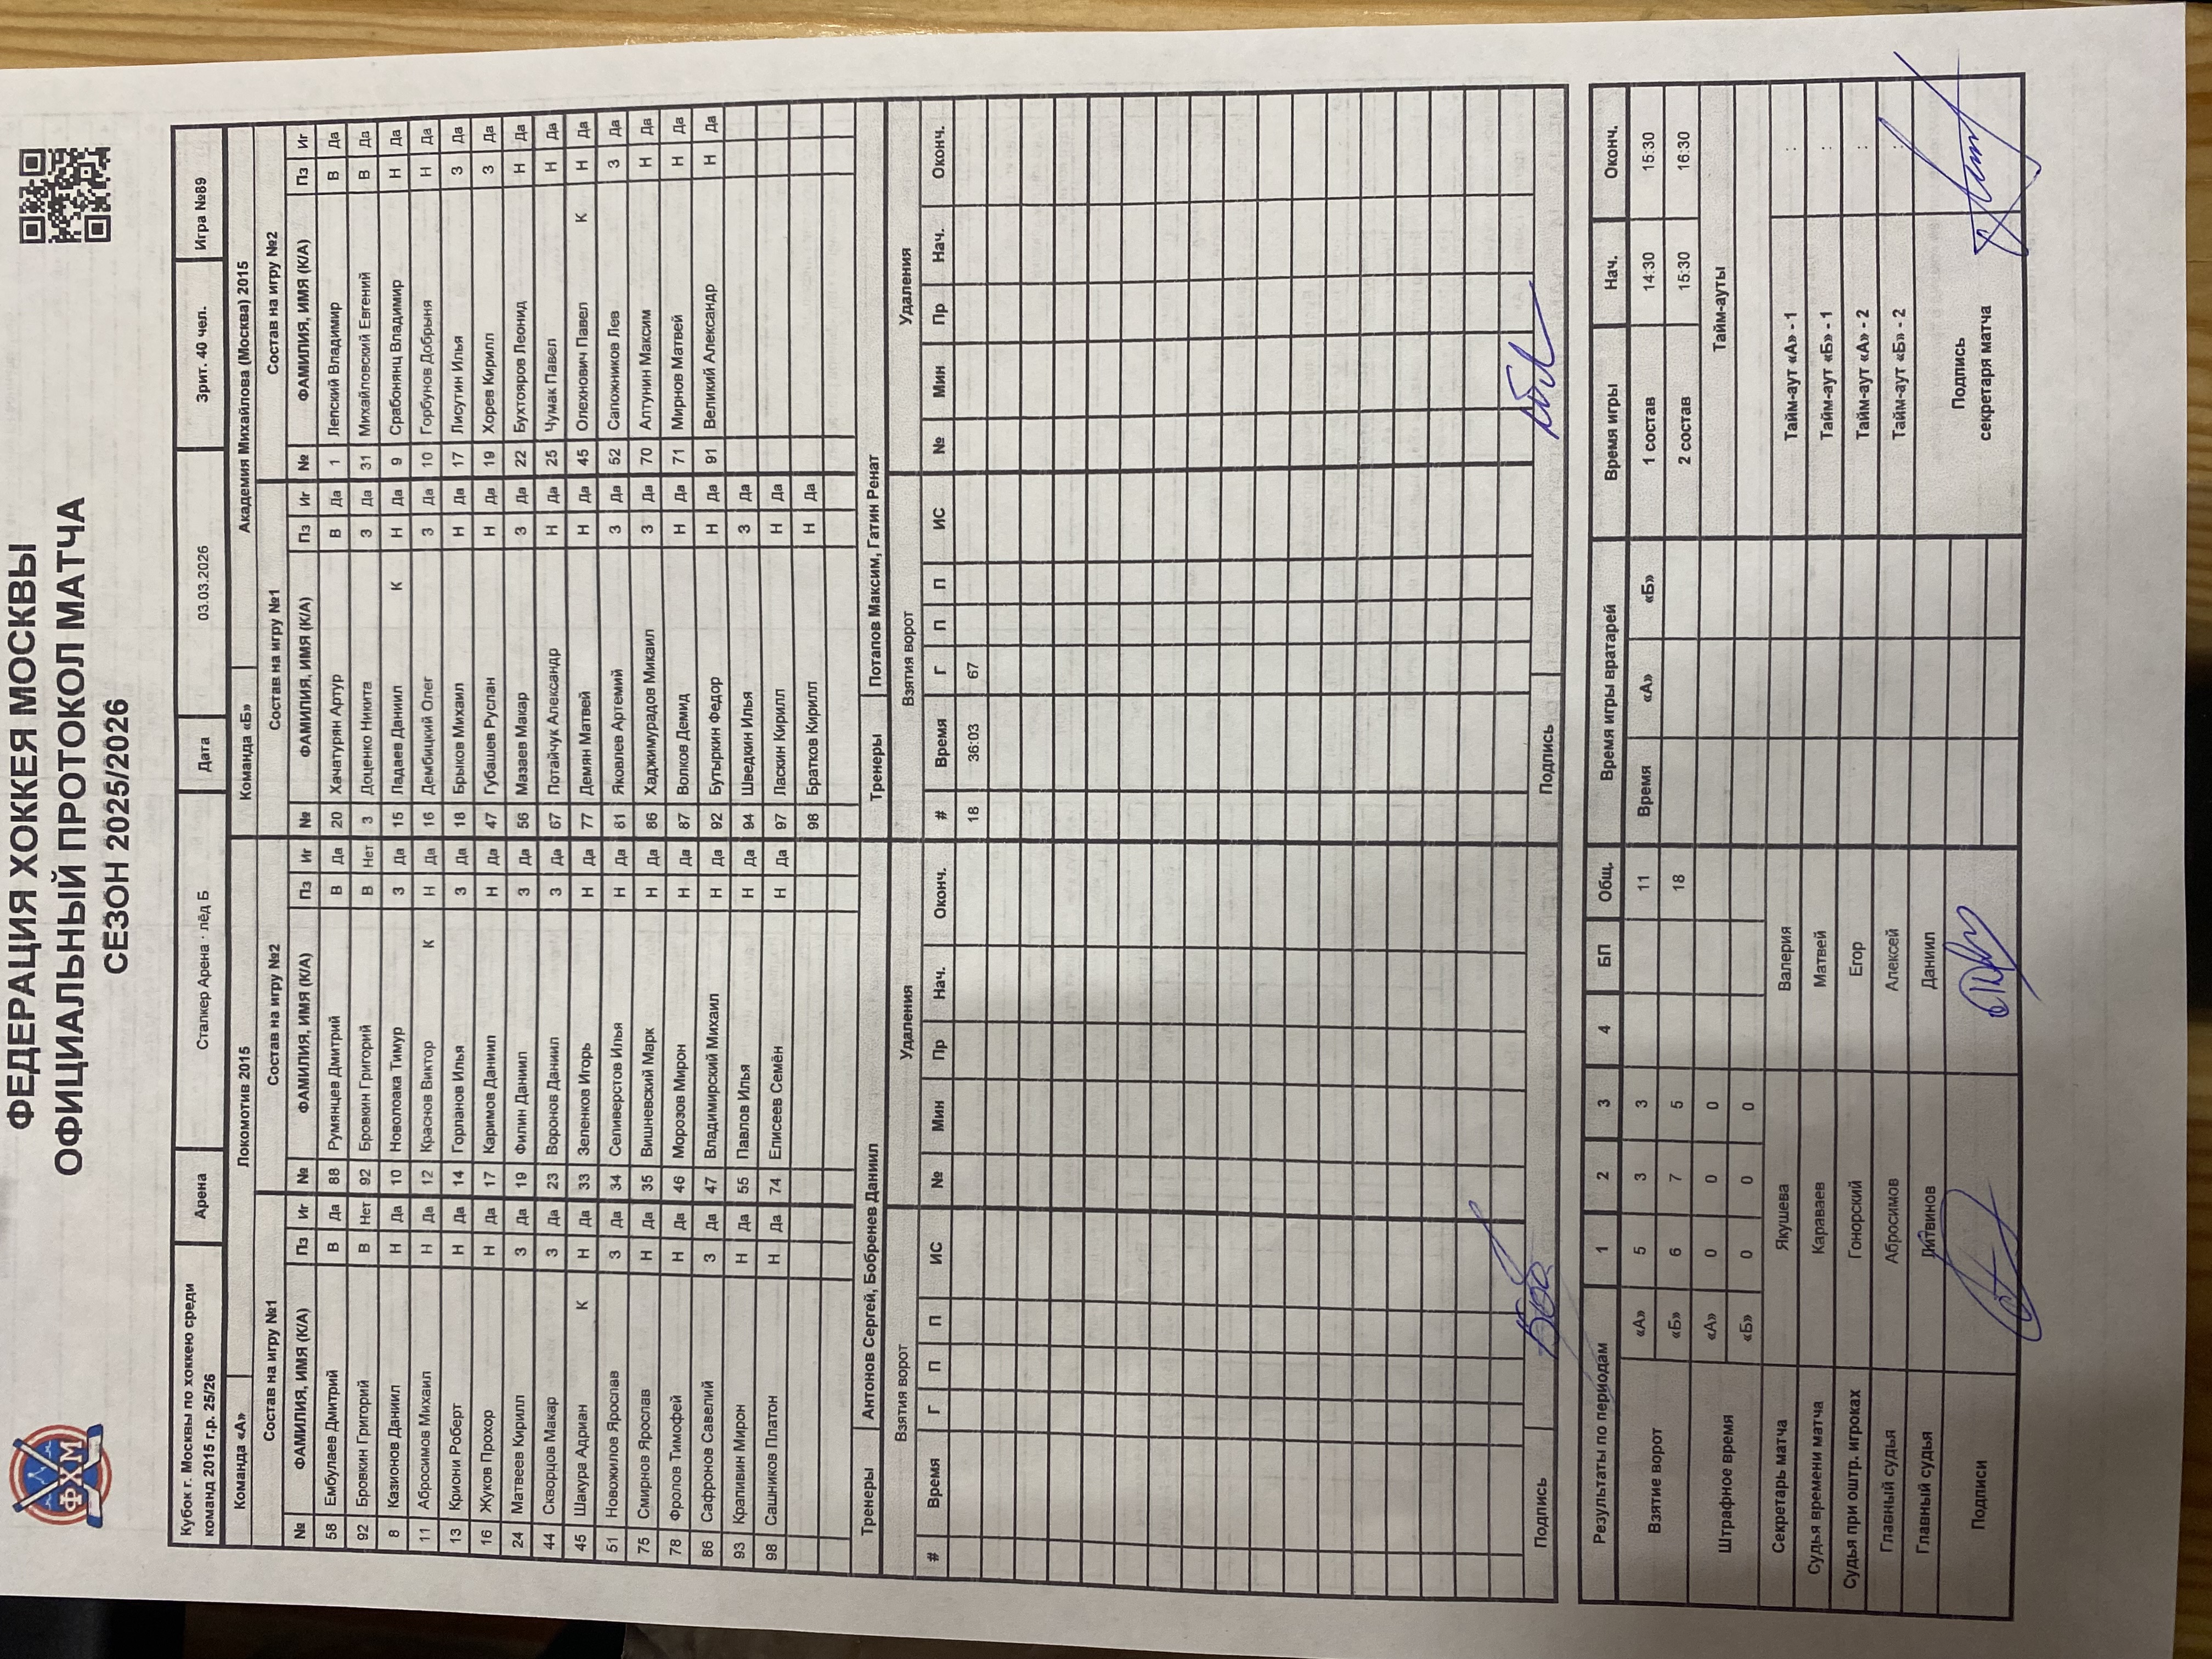 ФЕДЕРАЦИЯ ХОККЕЯ МОСКВЫ
ОФИЦИАЛЬНЫЙ ПРОТОКОЛ МАТЧА
СЕЗОН 2025/2026
ФХМ
Кубок г. Москвы по хоккею среди команд 2015 г.р. 25/26 Арена Сталкер Арена · лёд Б Дата 03.03.2026 Зрит. 40 чел. Игра №89
Команда «А» Локомотив 2015 Команда «Б» Академия Михайлова (Москва) 2015
Состав на игру №1 Состав на игру №2 Состав на игру №1 Состав на игру №2
№ ФАМИЛИЯ, ИМЯ (К/А) Пз Иг № ФАМИЛИЯ, ИМЯ (К/А) Пз Иг № ФАМИЛИЯ, ИМЯ (К/А) Пз Иг № ФАМИЛИЯ, ИМЯ (К/А) Пз Иг
58 Ембулаев Дмитрий В Да 88 Румянцев Дмитрий В Да 20 Хачатурян Артур В Да 1 Лепский Владимир В Да
92 Бровкин Григорий В Нет 92 Бровкин Григорий В Нет 3 Доценко Никита З Да 31 Михайловский Евгений В Да
8 Казионов Даниил Н Да 10 Новолоака Тимур З Да 15 Ладаев Даниил К Н Да 9 Срабонянц Владимир Н Да
11 Абросимов Михаил Н Да 12 Краснов Виктор К Н Да 16 Дембицкий Олег З Да 10 Горбунов Добрыня Н Да
13 Криони Роберт Н Да 14 Горланов Илья З Да 18 Брыков Михаил Н Да 17 Лисутин Илья З Да
16 Жуков Прохор Н Да 17 Каримов Даниил Н Да 47 Губашев Руслан Н Да 19 Хорев Кирилл З Да
24 Матвеев Кирилл З Да 19 Филин Даниил З Да 56 Мазаев Макар З Да 22 Бухтояров Леонид Н Да
44 Скворцов Макар З Да 23 Воронов Даниил З Да 67 Потайчук Александр Н Да 25 Чумак Павел Н Да
45 Шакура Адриан К Н Да 33 Зеленков Игорь Н Да 77 Демян Матвей Н Да 45 Олехнович Павел К Н Да
51 Новожилов Ярослав З Да 34 Селиверстов Илья Н Да 81 Яковлев Артемий З Да 52 Сапожников Лев З Да
75 Смирнов Ярослав Н Да 35 Вишневский Марк Н Да 86 Хаджимурадов Микаил З Да 70 Алтунин Максим Н Да
78 Фролов Тимофей Н Да 46 Морозов Мирон Н Да 87 Волков Демид Н Да 71 Мирнов Матвей Н Да
86 Сафронов Савелий З Да 47 Владимирский Михаил Н Да 92 Бутыркин Федор Н Да 91 Великий Александр Н Да
93 Крапивин Мирон Н Да 55 Павлов Илья Н Да 94 Шведкин Илья З Да
98 Сашников Платон Н Да 74 Елисеев Семён Н Да 97 Ласкин Кирилл Н Да
98 Братков Кирилл Н Да
Тренеры Антонов Сергей, Бобренев Даниил Тренеры Потапов Максим, Гатин Ренат
Взятия ворот Удаления Взятия ворот Удаления
# Время Г П П ИС № Мин Пр Нач. Оконч. # Время Г П П ИС № Мин Пр Нач. Оконч.
18 36:03 67
Подпись Подпись
Результаты по периодам 1 2 3 4 БП Общ. Время игры вратарей Время игры Нач. Оконч.
Взятие ворот «А» 5 3 3 11 Время «А» «Б» 1 состав 14:30 15:30
«Б» 6 7 5 18 2 состав 15:30 16:30
Штрафное время «А» 0 0 0 Тайм-ауты
«Б» 0 0 0
Секретарь матча Якушева Валерия Тайм-аут «А» - 1 :
Судья времени матча Караваев Матвей Тайм-аут «Б» - 1 :
Судья при оштр. игроках Гонорский Егор Тайм-аут «А» - 2 :
Главный судья Абросимов Алексей Тайм-аут «Б» - 2 :
Главный судья Литвинов Даниил
Подписи Подпись секретаря матча